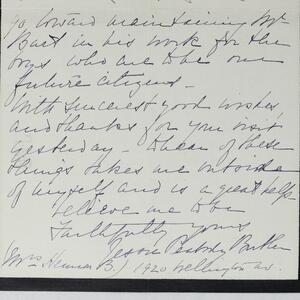 go toward maintaining Mr
Burt in his work for the
boys who are to be our
future citizens -
With sincerest good wishes
and thanks for your visit
yesterday - to hear of these
things takes me outside
of myself and is a great help
Believe me to be
Faithfully yours
Jessie Peabody Butler
(Mrs Hermon B.) 1920 Wellington av.